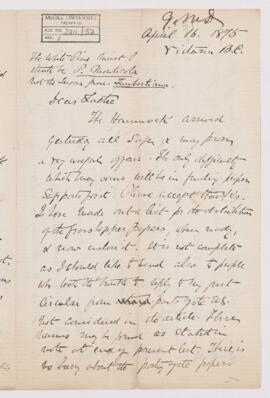 McGILL UNIVERSITY
ARCHIVES
ACC. NO. 2211/52
REF.
G.M.D
April 16. 1875
Victoria B.C.
The White Pine must I
think be P. Monticola
not the Sugar pine. Lambertiana
Dear Father
The Hammock arrived
yesterday all safe, & may prove
a very useful affair. The only difficulty
which may occur will be in finding proper
Supports for it. Please accept thanks.
I have made out a list for the distribution
of the Grasshopper papers, when ready,
& now enclose it. It is not complete
as I should like to send also to people
who took the trouble to reply to my first
Circular from parts quite
not considered in the article. These
names may be found as stated in
note at end of present list. There is
no hurry about the
papers